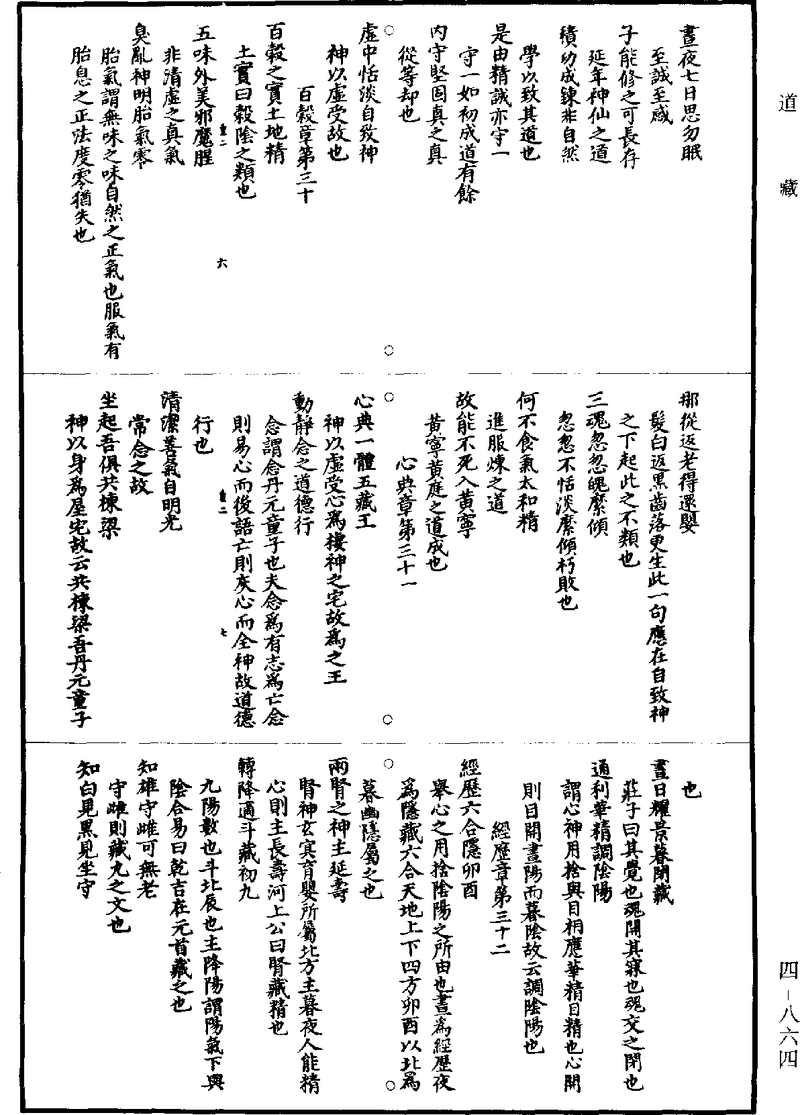 道藏
晝夜七日思勿眠
至誠至感
子能修之可長存
延年神仙之道
積功成鍊非自然
學以致其道也
是由精誠亦守一
守一如初成道有餘
內守堅固真之真
從等却也
虛中恬淡自致神
神以虛受故也
百穀章第三十
百穀之實土地精
土實曰穀陰之類也
五味外美邪魔腥
非清虛之真氣
臭亂神明胎氣零
胎氣謂無味之味自然之正氣也服氣有
胎息之正法度零猶失也
六
那從返老得還嬰
髮白返黑齒落更生此一句應在自致神
之下起此之不類也
三魂忽忽魄縻傾
忽忽不恬淡縻傾朽敗也
何不食氣太和精
進服煉之道
故能不死入黃寧
黃寧黃庭之道成也
心典章第三十一
心典一體五藏王
神以虛受心為棲神之宅故為之王
動靜念之道德行
念謂念丹元童子也夫念為有志為亡念
則易心而後語亡則灰心而全神故道德
行也
清潔善氣自明光
常念之故
坐起吾俱共棟梁
神以身為屋宅故云共棟梁吾丹元童子
七
也
晝日耀景暮閉藏
莊子曰其覺也魂開其寐也魂交之閉也
通利華精調陰陽
謂心神用捨與目相應華精目精也心開
則目開晝陽而暮陰故云調陰陽也
經歷章第三十二
經歷六合隱卯酉
舉心之用捨陰陽之所由也晝為經歷夜
為隱藏六合天地上下四方卯酉以北為
暮幽隱屬之也
兩腎之神主延壽
腎神玄冥育嬰所屬北方主暮夜人能精
心則主長壽河上公曰腎藏精也
轉降適斗藏初九
九陽數也斗北辰也主降陽謂陽氣下與
陰合易曰乾吉在元首藏之也
知雄守雌可無老
守雌則藏九之文也
知白見黑見坐守
四-八六四